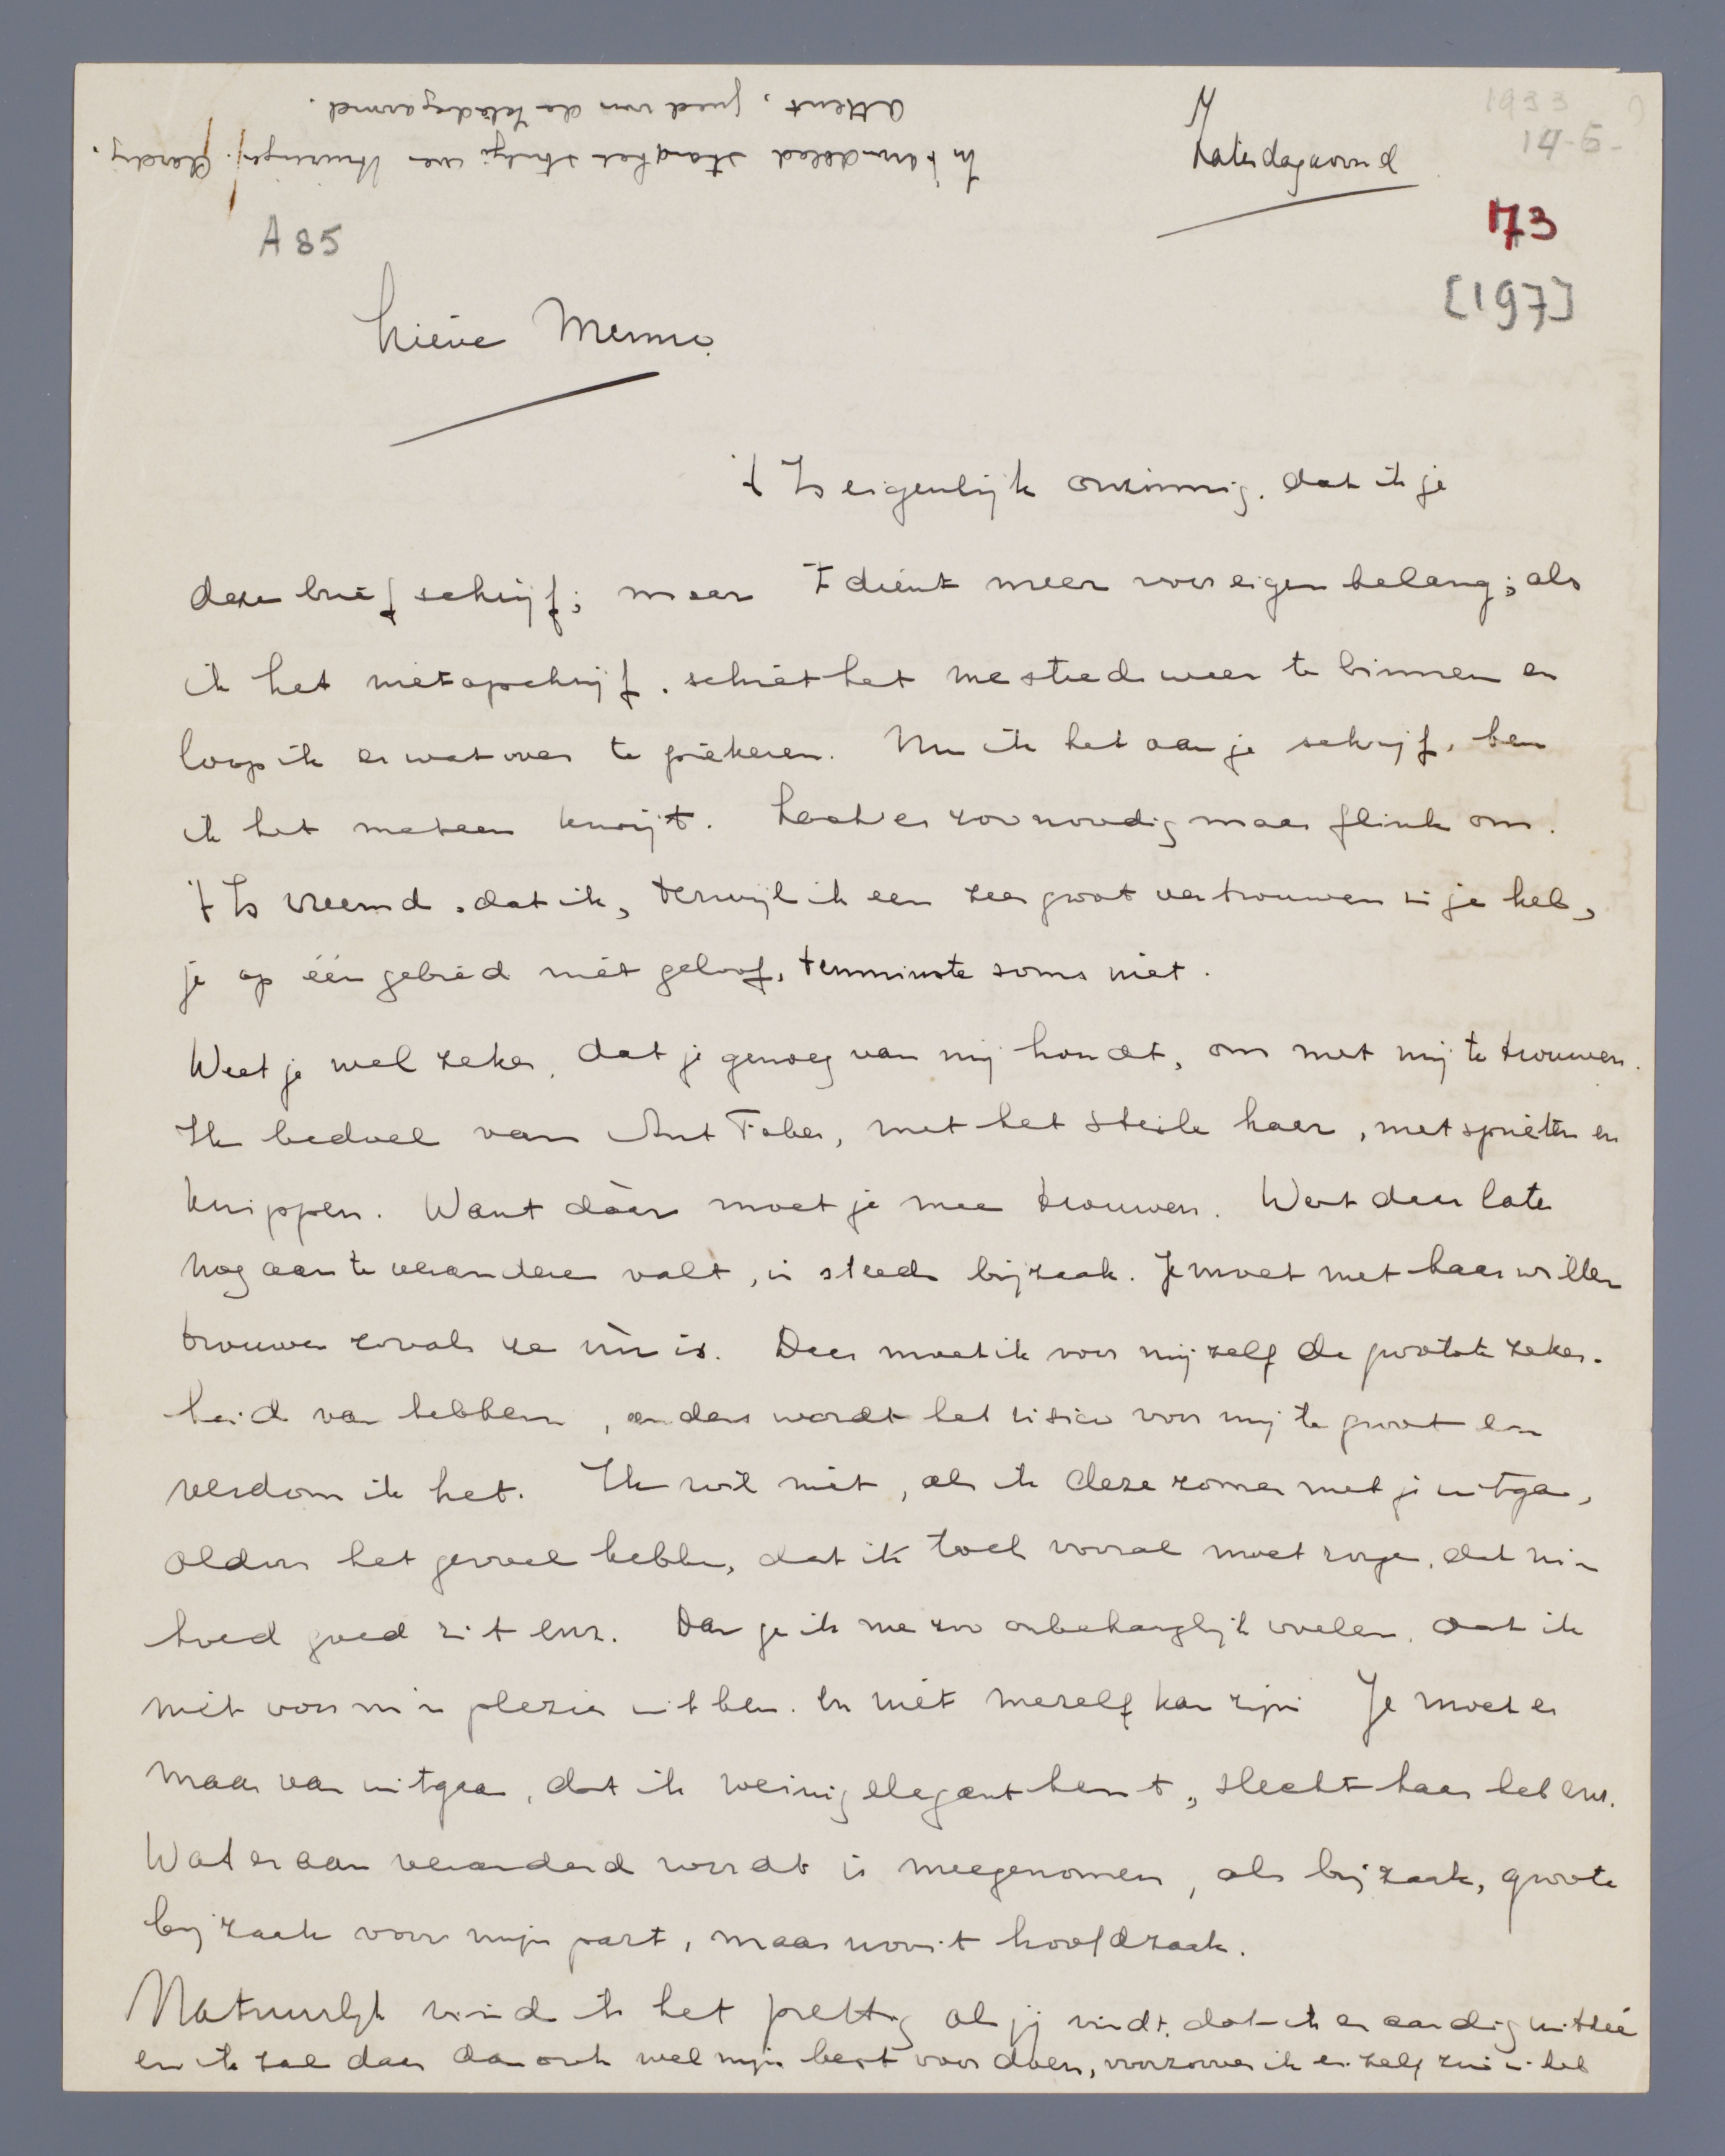 1933
14-5-
Zaterdagavond
173
[197]
A 85
In 't handelsblad stond het stukje over Huizinga. Aardig,
attent, goed van de Kladdegarned.
Lieve Menno.
't Is eigenlijk onzinnig, dat ik je
deze brief schrijf; maar 't dient meer voor eigen belang; als
ik het niet opschrijf, schiet het me steeds weer te binnen en
loop ik er wat over te piekeren. Nu ik het aan je schrijf, ben
ik het meteen kwijt. Lach er zoo noodig maar flink om.
't Is vreemd, dat ik, terwijl ik een zeer groot vertrouwen in je heb,
je op één gebied niet geloof, tenminste soms niet.
Weet je wel zeker, dat je genoeg van mij houdt, om met mij te trouwen.
Ik bedoel van Ant Faber, met het steile haar, met sprieten en
knippen. Want dáár moet je mee trouwen. Wat daar later
nog aan te veranderen valt, is steeds bijzaak. Je moet met haar willen
trouwen zooals ze nù is. Daar moet ik voor mijzelf de grootste zeker-
heid van hebben, anders wordt het risico voor mij te groot en
verdom ik het. Ik wil niet, als ik deze zomer met je uitga,
aldoor het gevoel hebben, dat ik toch vooral moet zorgen, dat m'n
hoed goed zit enz. Dan ga ik me zoo onbehagelijk voelen, dat ik
niet voor m'n plezier uit ben. En niet mezelf kan zijn. Je moet er
maar van uitgaan, dat ik weinig elegant ben, slecht haar heb enz.
Wat eraan veranderd wordt is meegenomen, als bijzaak, groote
bijzaak voor mijn part, maar nooit hoofdzaak.
Natuurlijk vind ik het prettig als jij vindt, dat ik er aardig uitzie
en ik zal daar dan ook wel mijn best voor doen, voorzoover ik er zelf zin in heb